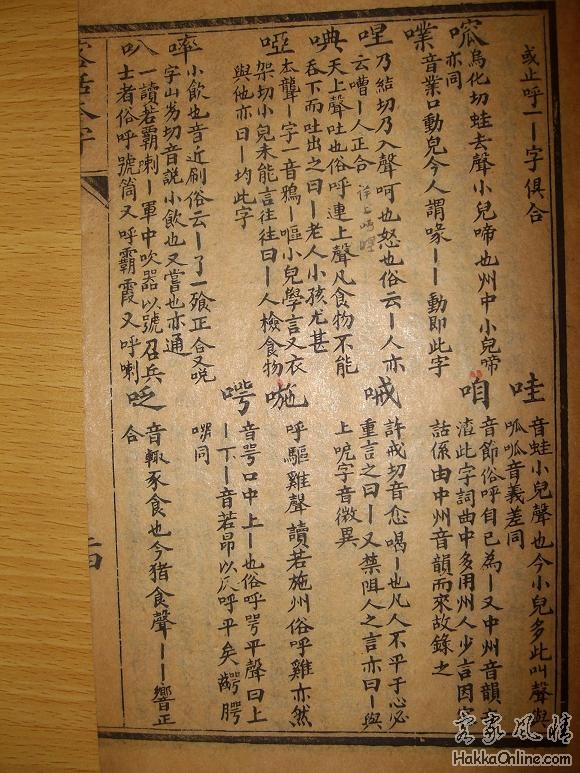 或止呼一丨字俱合
烏化切蛙去聲小兒啼也州中小兒啼
亦同
音業口動皃今人謂喙丨丨動即此字
乃結切乃入聲呵也怒也俗云丨人亦
云嘈丨人正合
唺
天上聲吐也俗呼連上聲凡食物不能
吞下而吐出之曰丨老人小孩尤甚
啞
本聾丨字一音鴉丨嘔小兒學言又衣
架切小兒未能言往往曰丨人檢食物
與他亦曰丨均此字
小飲也音近刷俗云丨了一飱正合又
字山芳切音說小飲也又嘗也亦通
叭
一讀若霸喇丨軍中吹器以號召兵
士者俗呼號筒又呼霸霞又呼喇
哇
音蛙小兒聲也今小兒多此叫聲與
呱呱音義差同
咱
音節俗呼自己為丨又中州音韻
渣此字詞曲中多用州人少言因字
詁係由中州音韻而來故錄之
許戒切音愈喝丨也凡人不平于心必
重言之曰丨又禁阻人之言亦曰丨與
上呢字音微異
呼驅雞聲讀若施州俗呼雞亦然
音咢口中上丨也俗呼咢平聲曰上
丨下丨音若昂以仄呼平矣
同
音輒豕食也今猪食聲丨丨響正
合
客家風情
HakkaOnline.com